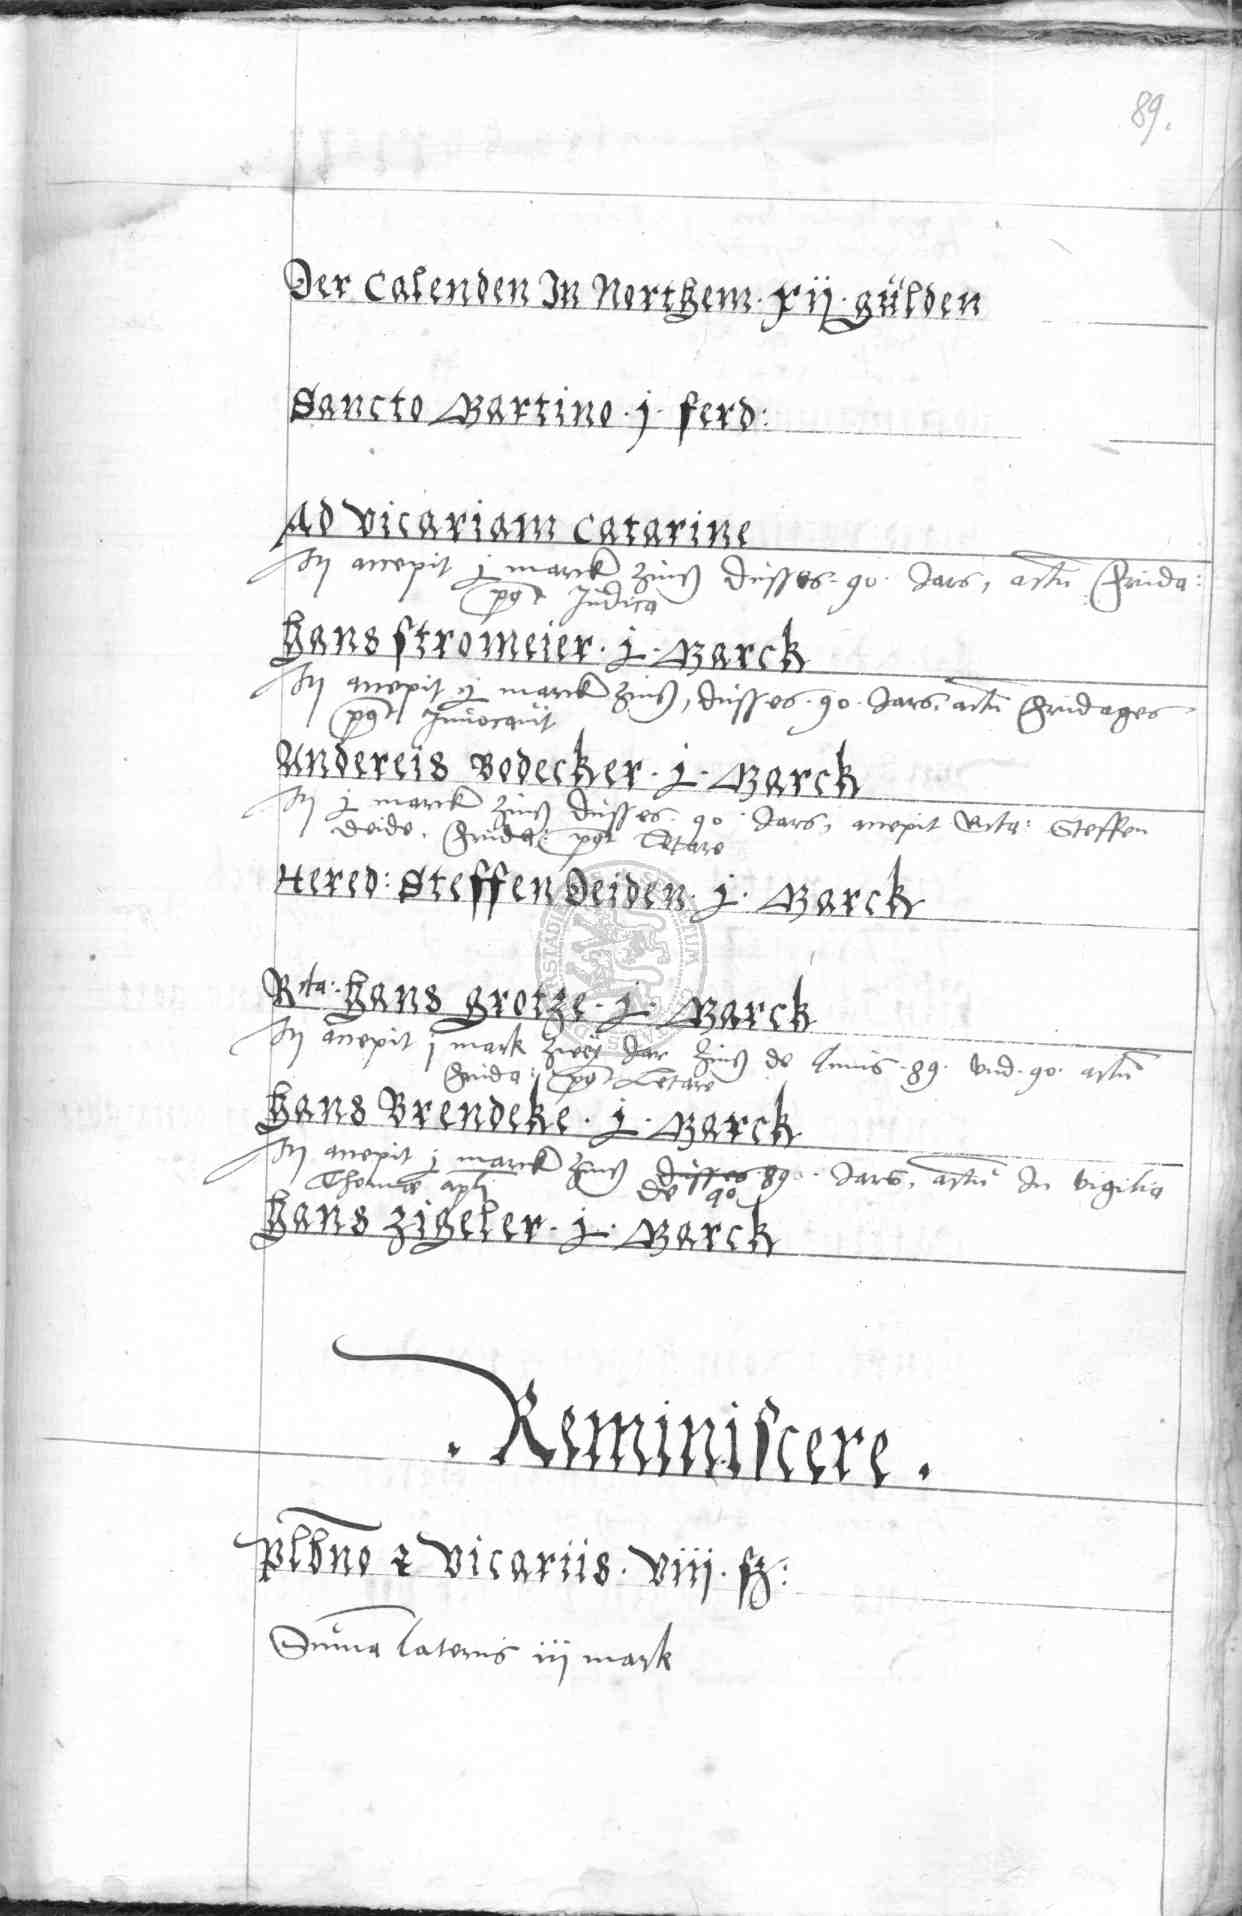 89.
Der Calenden In Northem · xij · gülden
Sancto Martino · j · ferd:
Ad vicariam Catarine
accepit j marck Zins disses · 90 · Jars, actū Frida:
post Judica
Hans Stromeier · j · Marck
accepit j marck Zins, disses · 90 · Jars, actū Fridages
post Inuocauit
Andereis Bodecker · j · Marck
j marck Zins disses · 90 · Jars, accepit Rcta: Steffen
Deide. Frida: post Letare
Hered: Steffen Deiden · j · Marck
Rcta: Hans grotze · j · Marck
accepit j mark zwey Jar Zins de Annis · 89 · vnd · 90 · actū
Frida: post Letare
Hans Brendeke · j · Marck
accepit j marck Zins disses 89 · Jars, actū In vigilia
Thomæ apli de 90
Hans Zigeler · j · Marck
. Reminiscere .
Plbno & vicariis · viij · ß:
Suma lateris iij mark